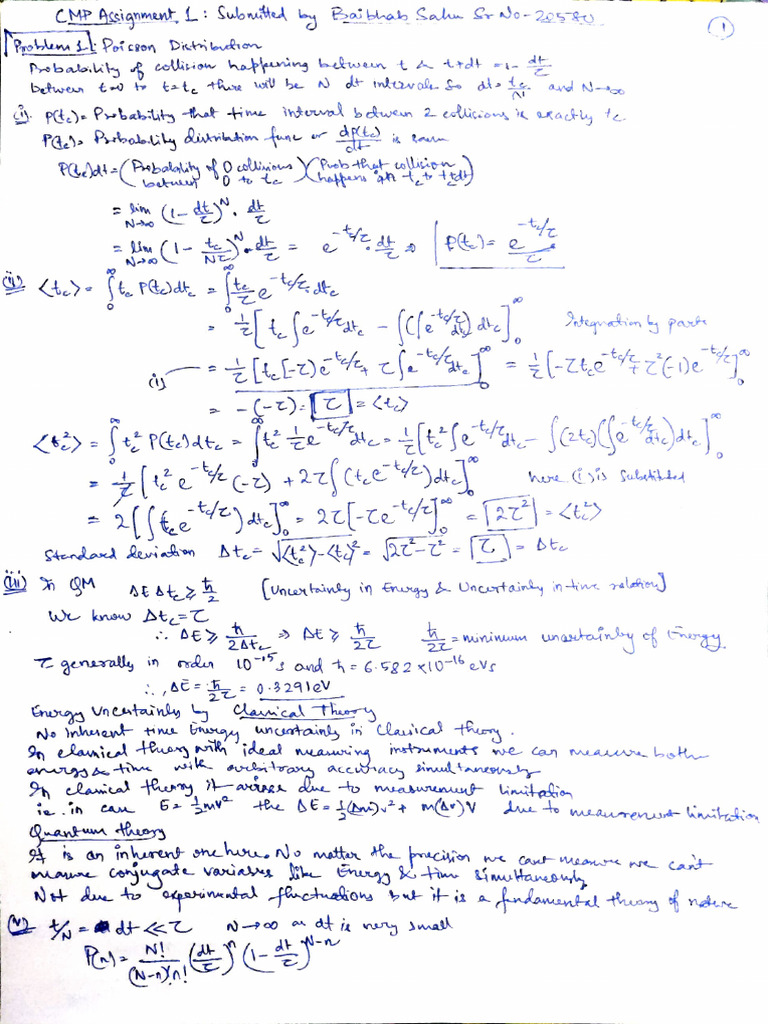 CMP Assignment 1: Submitted by Baibhab Sahu Sr No - 20580
①
Problem 1: Poisson Distribution
Probability of collision happening between t & t+dt = 1 - dt/τ
between t=0 to t=tc there will be N dt intervals so dt = tc/N and N→∞
(i) P(tc) = Probability that time interval between 2 collisions is exactly tc
P(tc) = Probability distribution func or dp(tc)/dt is same
P(tc)dt = (Probability of 0 collisions between 0 to tc) (Prob that collision happens in tc to t+dt)
= lim N→∞ (1 - dt/τ)^N . dt/τ
= lim N→∞ (1 - tc/Nτ)^N . dt/τ = e^(-tc/τ) . dt/τ ⇒ P(tc) = e^(-tc/τ)/τ
(ii) <tc> = ∫₀^∞ tc P(tc)dtc = ∫₀^∞ tc/τ e^(-tc/τ) dtc
= 1/τ [tc ∫e^(-tc/τ)dtc - ∫(∫e^(-tc/τ)dtc)dtc]₀^∞ Integration by parts
(i) — = 1/τ [tc[-τ)e^(-tc/τ) + τ∫e^(-tc/τ)dtc]₀^∞ = 1/τ [-τtc e^(-tc/τ) + τ²(-1)e^(-tc/τ)]₀^∞
= -(-τ) = τ = <tc>
<tc²> = ∫₀^∞ tc² P(tc)dtc = ∫₀^∞ tc² 1/τ e^(-tc/τ) dtc = 1/τ [tc² ∫e^(-tc/τ)dtc - ∫(2tc)(∫e^(-tc/τ)dtc)dtc]₀^∞
= 1/τ [tc² e^(-tc/τ) (-τ) + 2τ∫(tc e^(-tc/τ))dtc]₀^∞ here (i) is substituted
= 2[∫(tc e^(-tc/τ))dtc]₀^∞ = 2τ[-τe^(-tc/τ)]₀^∞ = 2τ² = <tc²>
Standard deviation Δtc = √(<tc²>-<tc>²) = √(2τ²-τ²) = τ = Δtc
(iii) In QM ΔEΔtc ≥ ħ/2 [Uncertainty in Energy & Uncertainty in time relation]
We know Δtc = τ
∴ ΔE ≥ ħ/2Δtc ⇒ ΔE ≥ ħ/2τ ħ/2τ = minimum uncertainty of Energy.
τ generally in order 10^-15 s and ħ = 6.582 × 10^-16 eVs
∴ ΔE = ħ/2τ = 0.3291eV
Energy Uncertainty by Classical Theory
No inherent time Energy uncertainty in Classical theory.
In classical theory with ideal measuring instruments we can measure both
energy & time with arbitrary accuracy simultaneously
In classical theory it arises due to measurement limitation
ie. in case E = 1/2 mv² the ΔE = 1/2 (Δm)v² + m(Δv)v due to measurement limitation
Quantum theory
It is an inherent one here. No matter the precision we cant measure we can't
measure conjugate variables like Energy & time simultaneously
Not due to experimental fluctuations but it is a fundamental theory of nature
(v) t/N = dt << τ N→∞ as dt is very small
P(n) = N!/(N-n)!n! (dt/τ)^n (1 - dt/τ)^(N-n)